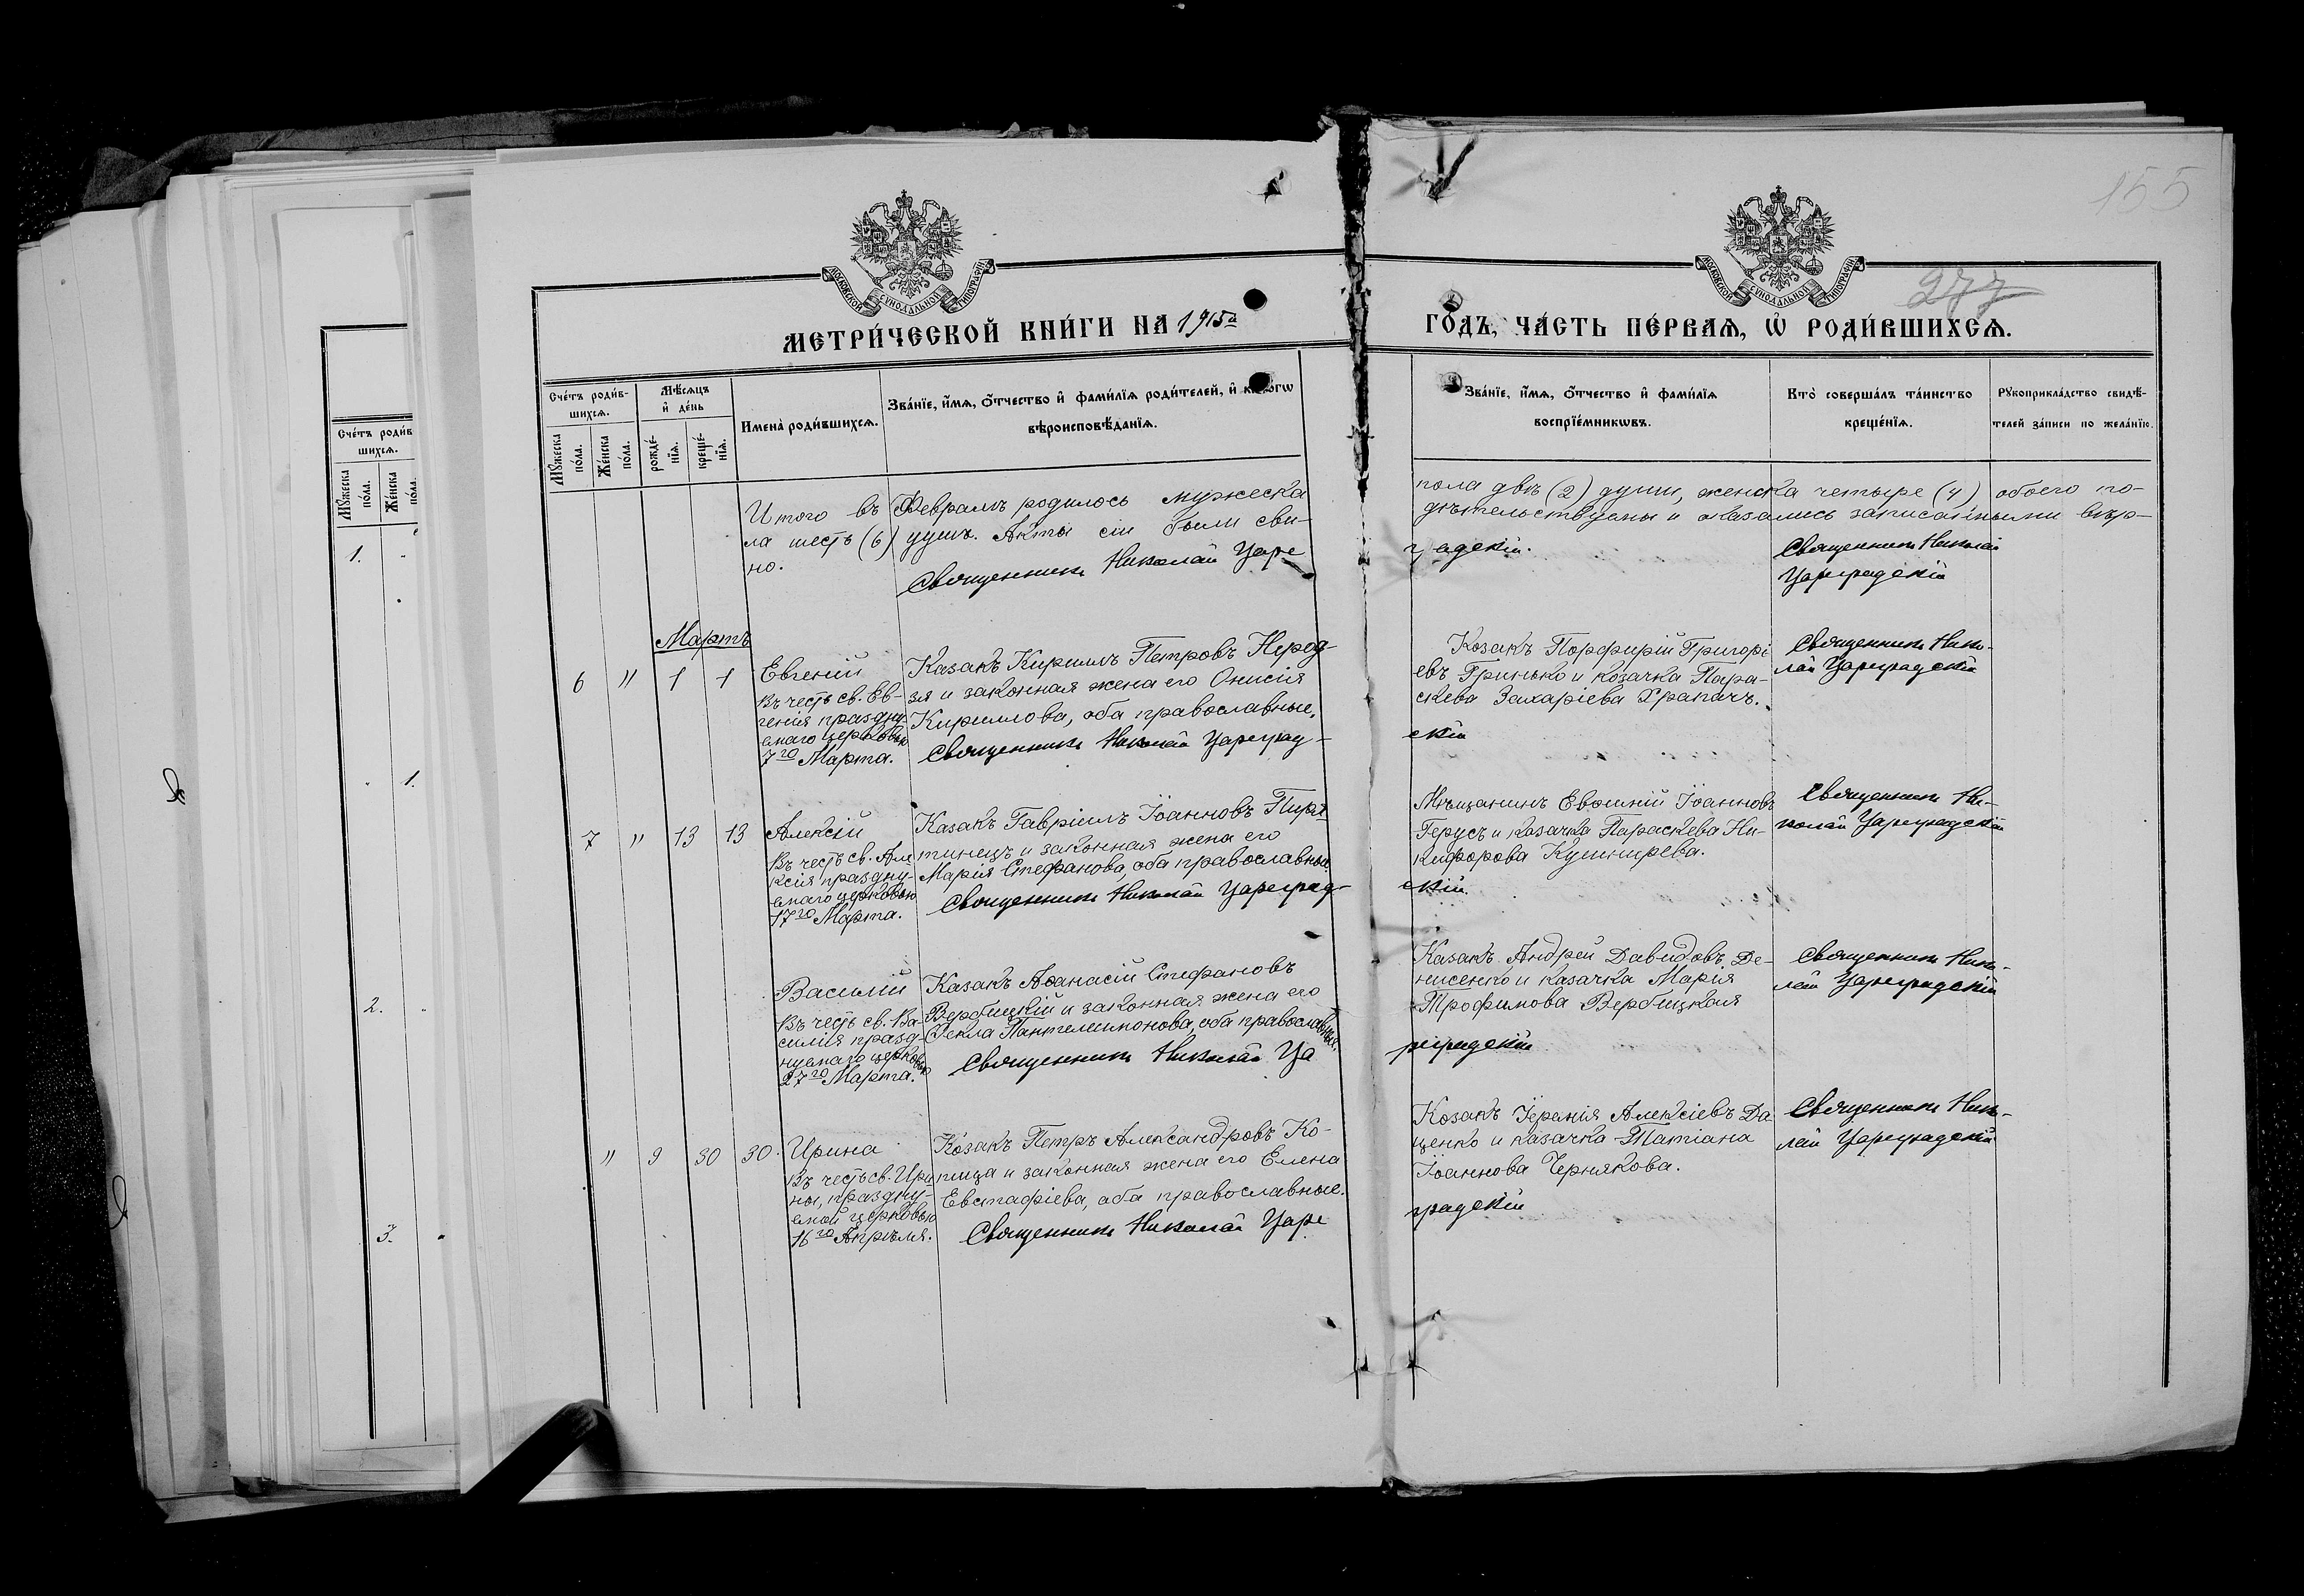 155
277
МОСКОВСКОЙ СѴНОДАЛЬНОЙ ТИПОГРАФІИ
МОСКОВСКОЙ СѴНОДАЛЬНОЙ ТИПОГРАФІИ
МЕТРИ́ЧЕСКОЙ КНИ́ГИ НА 1915й
ГО́ДЪ, ЧА́СТЬ ПЕ́РВАѦ, Ѡ҆ РОДИ́ВШИХСѦ.
Сче́тъ роди́в
шихсѧ.
Мꙋ́жеска
по́ла.
Же́нска
по́ла.
1.
1.
2.
3.
Сче́тъ роди́в-
шихсѧ.
Мꙋ́жеска
по́ла.
Же́нска
по́ла.
Мѣ́сѧцъ
и҆ де́нь
рожде́-
нїѧ.
креще́-
нїѧ.
Имена̀ роди́вшихсѧ.
Зва́нїе, и҆́мѧ, ѻ҆́тчество и҆ фами́лїѧ роди́телей, и҆
вѣроисповѣ́данїѧ.
Зва́нїе, и҆́мѧ, ѻ҆́тчество и҆ фами́лїѧ
воспрїе́мникѡвъ.
Кто̀ соверша́лъ та́инство
креще́нїѧ.
Рꙋкоприкла́дство свидѣ́-
телей за́писи по жела́нїю.
Итого въ Февралѣ родилось мужеска пола двѣ (2) души, женска четыре (4) обоего по-
ла шесть (6) душъ. Акты сіи были сви- дѣтельствуемы и оказались записанными вѣр-
но.
Священникъ Николай Царе градскій.
Священникъ Николай
Цареградскій
Мартъ
6 " 1 1
Евгеній
Въ честь св. Ев-
генія праздну-
емаго церковью
7го Марта.
Казакъ Кириллъ Петровъ Нерод-
зя и законная жена его Онисія
Кириллова, оба православные.
Священникъ Николай Цареград-
скій
Козакъ Порфирій Григорі
евъ Гринько и козачка Пара-
скева Захаріева Храпачъ.
Священникъ Нико-
лай Цареградскій
7 " 13 13
Алексій
Въ честь св. Але
ксія праздну-
емаго церковью
17го Марта.
Казакъ Гавріилъ Іоанновъ Пиря
тинецъ и законная жена его
Марія Стефанова, оба православные
Священникъ Николай Цареград-
скій.
Мѣщанинъ Евѳимій Іоанновъ
Герусъ и козачка Параскева Ни-
кифорова Кушнирева.
Священникъ Ни-
колай Цареградскій
Василій
Въ честь св. Ва-
силія празд-
нуемаго церковью
27го Марта.
Казакъ Аѳанасій Стефановъ
Вербицкій и законная жена его
Ѳекла Пантелеимонова, оба православные.
Священникъ Николай Ца
реградскій
Казакъ Андрей Давидовъ Де-
нисенко и казачка Марія
Трофимова Вербицкая
Священникъ Нико-
лай Цареградскій
" 9 30 30.
Ирина
Въ честь св. Ири
ны, праздну-
емой церковью
16го Апрѣля.
Козакъ Петръ Александровъ Ко-
пица и законная жена его Елена
Евстафіева, оба православные.
Священникъ Николай Царе
градскій
Козакъ Алексіевъ Да
ценко и казачка Татіана
Іоаннова Чернякова.
Священникъ Нико-
лай Цареградскій